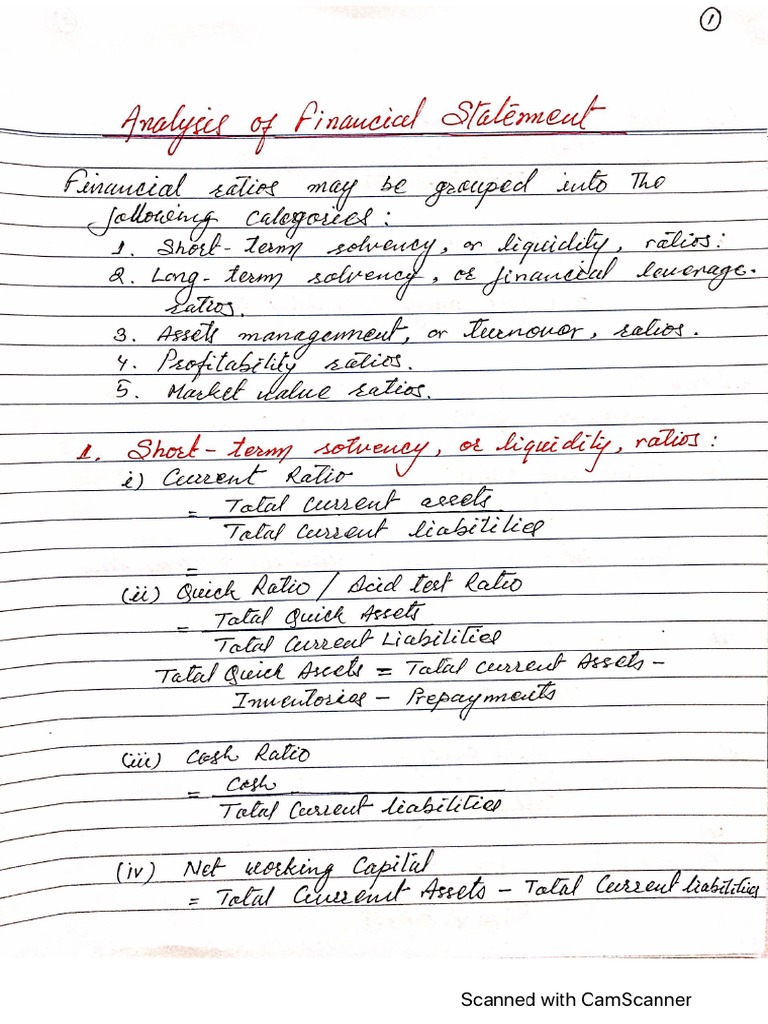 1
Analysis of Financial Statement
Financial ratios may be grouped into The
following Categories:
1. Short-term solvency, or liquidity, ratios:
2. Long-term solvency, or financial leverage.
ratios.
3. Assets management, or turnover, ratios.
4. Profitability ratios.
5. Market value ratios.
1. Short-term solvency, or liquidity, ratios:
i) Current Ratio
= Total Current assets
Total Current liabilities
=
(ii) Quick Ratio / Acid test Ratio
= Total Quick Assets
Total Current Liabilities
Total Quick Assets = Total Current Assets -
Inventories - Prepayments
(iii) Cash Ratio
= Cash
Total Current liabilities
(iv) Net working Capital
= Total Current Assets - Total Current liabilities
Scanned with CamScanner